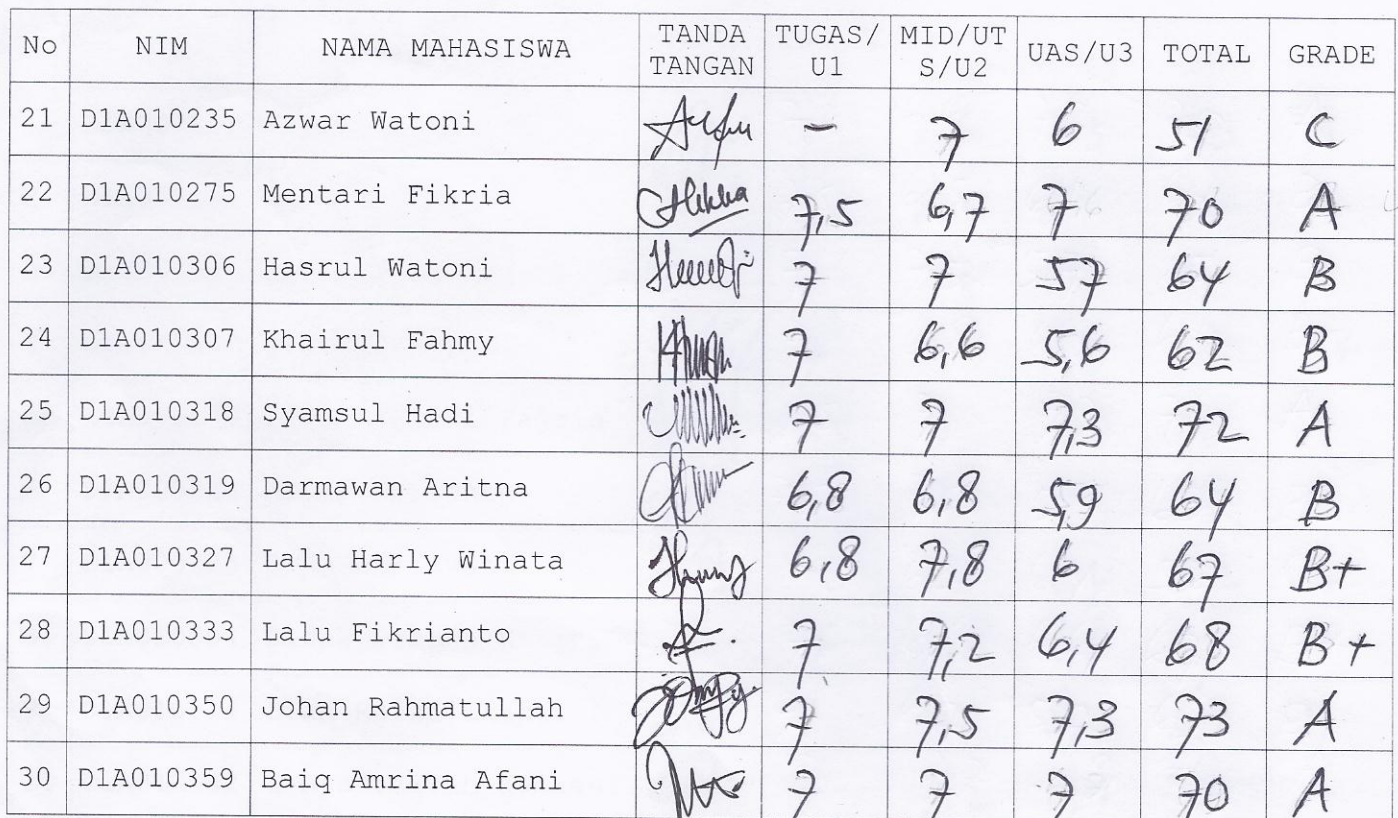 No NIM NAMA MAHASISWA TANDA TANGAN TUGAS/U1 MID/UTS/U2 UAS/U3 TOTAL GRADE
21 D1A010235 Azwar Watoni - 7 6 51 C
22 D1A010275 Mentari Fikria 7,5 6,7 7 70 A
23 D1A010306 Hasrul Watoni 7 7 57 64 B
24 D1A010307 Khairul Fahmy 7 6,6 5,6 62 B
25 D1A010318 Syamsul Hadi 7 7 7,3 72 A
26 D1A010319 Darmawan Aritna 6,8 6,8 5,9 64 B
27 D1A010327 Lalu Harly Winata 6,8 7,8 6 67 B+
28 D1A010333 Lalu Fikrianto 7 7,2 6,4 68 B+
29 D1A010350 Johan Rahmatullah 7 7,5 7,3 73 A
30 D1A010359 Baiq Amrina Afani 7 7 7 70 A